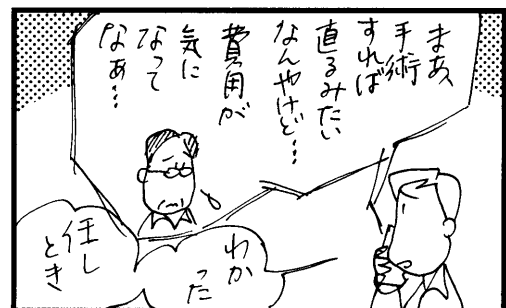 まあ、
手術
すれば
直るみたい
なんやけど…
費用が
気に
なって
なぁ…
わか
った
任し
とき